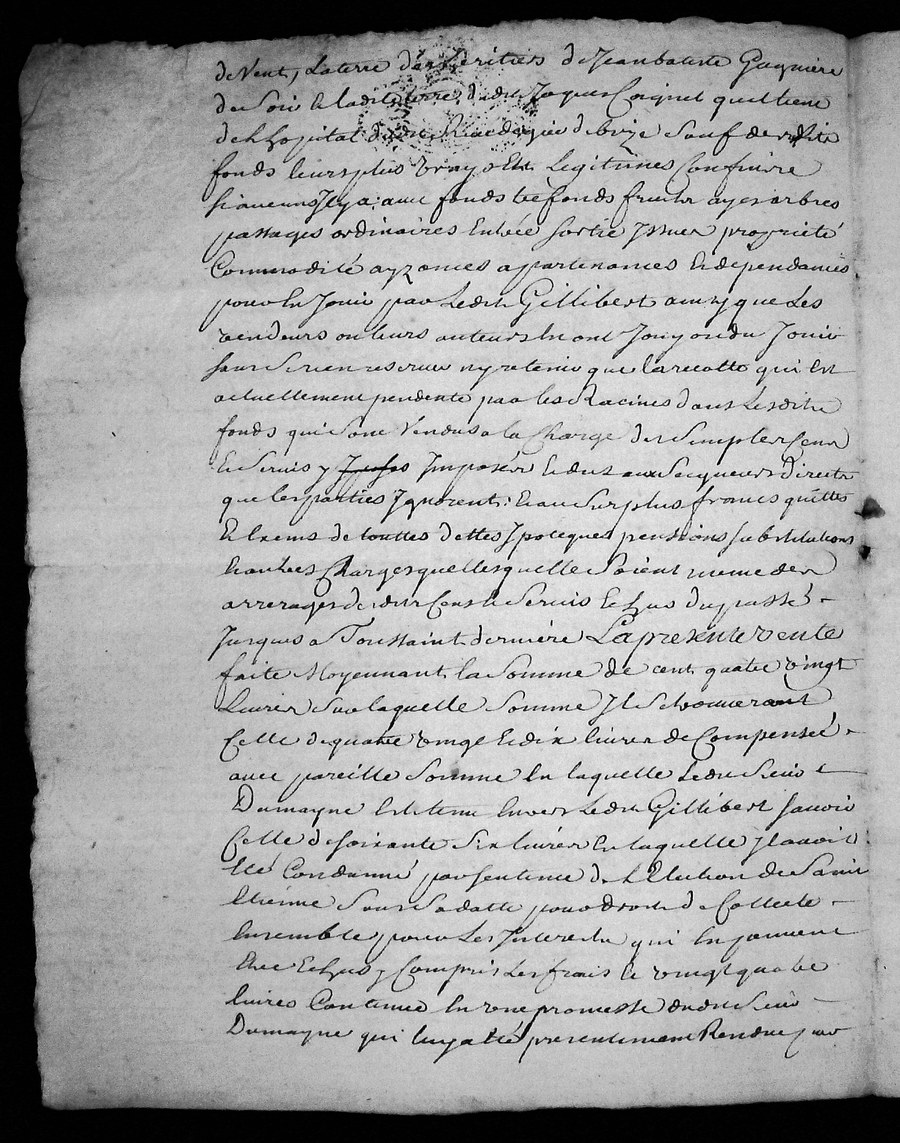 de Vent, La terre des heritiers de Jean batiste Gagniere
de Soir & ladite terre dudit Jaques Coignet quil tient
de l'hopital de
fonds leurs plus vrays Et Legitimes Confins
si aucuns Jl y a; avec fonds trefonds fruits ayes arbres
passages ordinaires Entrée sortie Jssues propriété
Commodité ayzances apartenances Et dépendances
pour En Jouir par Ledit Gillibert ainsy que Les
vendeurs ou leurs auteurs En ont Jouy ou du Jouir
sans se rien reserver ny retenir que la recolte qui Est
actuellement pendente par les Racines dans Lesdits
fonds qui sont Vendus a la Charge des Simples Cens
& Servis y Jmposés & dus aux Seigneurs Directs
que les parties Jgnorent; & au Surplus francs quittes
Et Exems de touttes dettes Jpoteques pensions substitutions
& autres Charges quelles quelle Soient meme des
arrerages desdits Cens & Servis Echus du passé
Jusques a Toussaint derniére La presente vente
faite Moyennant la Somme de cent quatre vingt
Livres Sur laquelle Somme Jls
Celle de quatre vingt & dix livres de Compensée
avec pareille Somme En laquelle Ledit Sieur
Dumayne Est tenu Envers Ledit Gillibert savoir
Celle de soixante Six livres En laquelle Jl avoit
Eté Condamné par sentence de L'Election de Saint
Etienne Sous Sa datte pour droit de Collecte
Ensemble pour Les Jnterets qui En
Echus y Compris Les frais & vingt quatre
livres Contenue En une promesse dudit Sieur
Dumayne qui luy a été presentement Rendue par